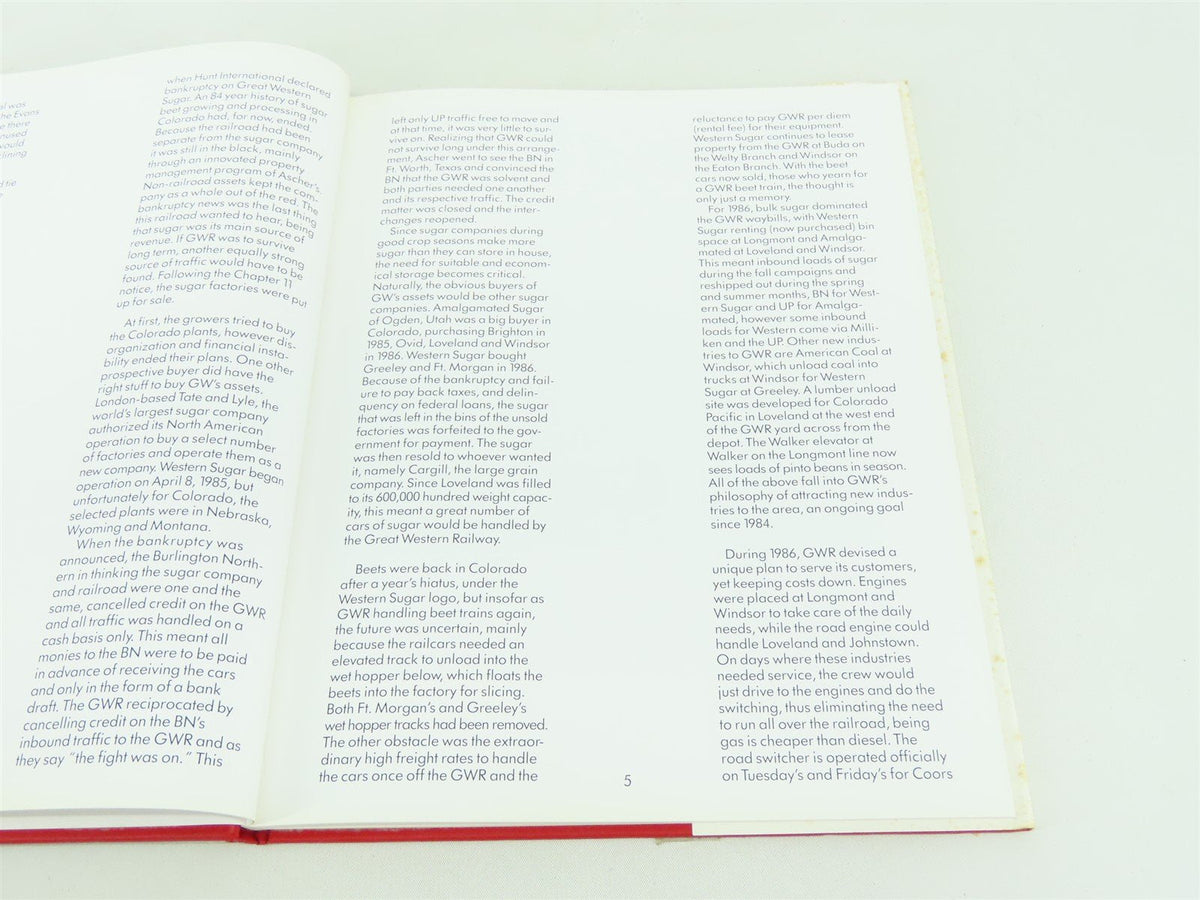 al was
he Evans
e there
nused
would
lining
d tie
when Hunt International declared
bankruptcy on Great Western
Sugar. An 84 year history of sugar
beet growing and processing in
Colorado had, for now, ended.
Because the railroad had been
separate from the sugar company
it was still in the black, mainly
through an innovated property
management program of Ascher's.
Non-railroad assets kept the com-
pany as a whole out of the red. The
bankruptcy news was the last thing
this railroad wanted to hear, being
that sugar was its main source of
revenue. If GWR was to survive
long term, another equally strong
source of traffic would have to be
found. Following the Chapter 11
notice, the sugar factories were put
up for sale.
At first, the growers tried to buy
the Colorado plants, however dis-
organization and financial insta-
bility ended their plans. One other
prospective buyer did have the
right stuff to buy GW's assets.
London-based Tate and Lyle, the
world's largest sugar company
authorized its North American
operation to buy a select number
of factories and operate them as a
new company. Western Sugar began
operation on April 8, 1985, but
unfortunately for Colorado, the
selected plants were in Nebraska,
Wyoming and Montana.
When the bankruptcy was
announced, the Burlington North-
ern in thinking the sugar company
and railroad were one and the
same, cancelled credit on the GWR
and all traffic was handled on a
cash basis only. This meant all
monies to the BN were to be paid
in advance of receiving the cars
and only in the form of a bank
draft. The GWR reciprocated by
cancelling credit on the BN's
inbound traffic to the GWR and as
they say "the fight was on." This
left only UP traffic free to move and
at that time, it was very little to sur-
vive on. Realizing that GWR could
not survive long under this arrange-
ment, Ascher went to see the BN in
Ft. Worth, Texas and convinced the
BN that the GWR was solvent and
both parties needed one another
and its respective traffic. The credit
matter was closed and the inter-
changes reopened.
Since sugar companies during
good crop seasons make more
sugar than they can store in house,
the need for suitable and econom-
ical storage becomes critical.
Naturally, the obvious buyers of
GW's assets would be other sugar
companies. Amalgamated Sugar
of Ogden, Utah was a big buyer in
Colorado, purchasing Brighton in
1985, Ovid, Loveland and Windsor
in 1986. Western Sugar bought
Greeley and Ft. Morgan in 1986.
Because of the bankruptcy and fail-
ure to pay back taxes, and delin-
quency on federal loans, the sugar
that was left in the bins of the unsold
factories was forfeited to the gov-
ernment for payment. The sugar
was then resold to whoever wanted
it, namely Cargill, the large grain
company. Since Loveland was filled
to its 600,000 hundred weight capac-
ity, this meant a great number of
cars of sugar would be handled by
the Great Western Railway.
Beets were back in Colorado
after a year's hiatus, under the
Western Sugar logo, but insofar as
GWR handling beet trains again,
the future was uncertain, mainly
because the railcars needed an
elevated track to unload into the
wet hopper below, which floats the
beets into the factory for slicing.
Both Ft. Morgan's and Greeley's
wet hopper tracks had been removed.
The other obstacle was the extraor-
dinary high freight rates to handle
the cars once off the GWR and the
reluctance to pay GWR per diem
(rental fee) for their equipment.
Western Sugar continues to lease
property from the GWR at Buda on
the Welty Branch and Windsor on
the Eaton Branch. With the beet
cars now sold, those who yearn for
a GWR beet train, the thought is
only just a memory.
For 1986, bulk sugar dominated
the GWR waybills, with Western
Sugar renting (now purchased) bin
space at Longmont and Amalga-
mated at Loveland and Windsor.
This meant inbound loads of sugar
during the fall campaigns and
reshipped out during the spring
and summer months, BN for West-
ern Sugar and UP for Amalga-
mated, however some inbound
loads for Western come via Milli-
ken and the UP. Other new indus-
tries to GWR are American Coal at
Windsor, which unload coal into
trucks at Windsor for Western
Sugar at Greeley. A lumber unload
site was developed for Colorado
Pacific in Loveland at the west end
of the GWR yard across from the
depot. The Walker elevator at
Walker on the Longmont line now
sees loads of pinto beans in season.
All of the above fall into GWR's
philosophy of attracting new indus-
tries to the area, an ongoing goal
since 1984.
During 1986, GWR devised a
unique plan to serve its customers,
yet keeping costs down. Engines
were placed at Longmont and
Windsor to take care of the daily
needs, while the road engine could
handle Loveland and Johnstown.
On days where these industries
needed service, the crew would
just drive to the engines and do the
switching, thus eliminating the need
to run all over the railroad, being
gas is cheaper than diesel. The
road switcher is operated officially
on Tuesday's and Friday's for Coors
5